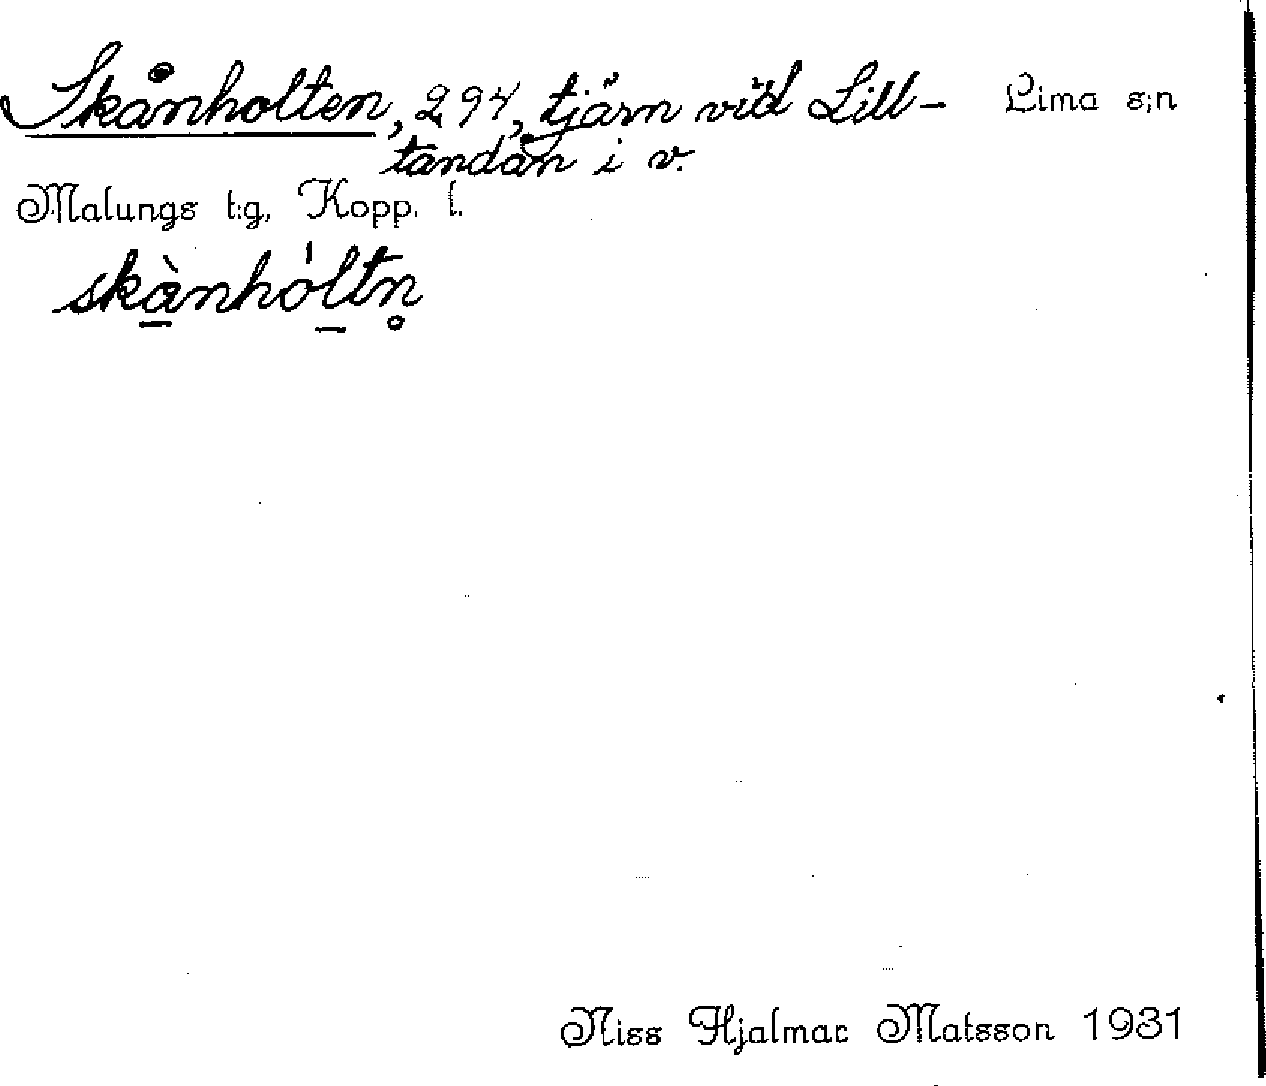 Skånholten, 294, tjärn vid Lill- Lima s;n
tandån i v.
Malungs t:g, Kopp. l.
skànhóltn̥
Niss Hjalmar Matsson 1931